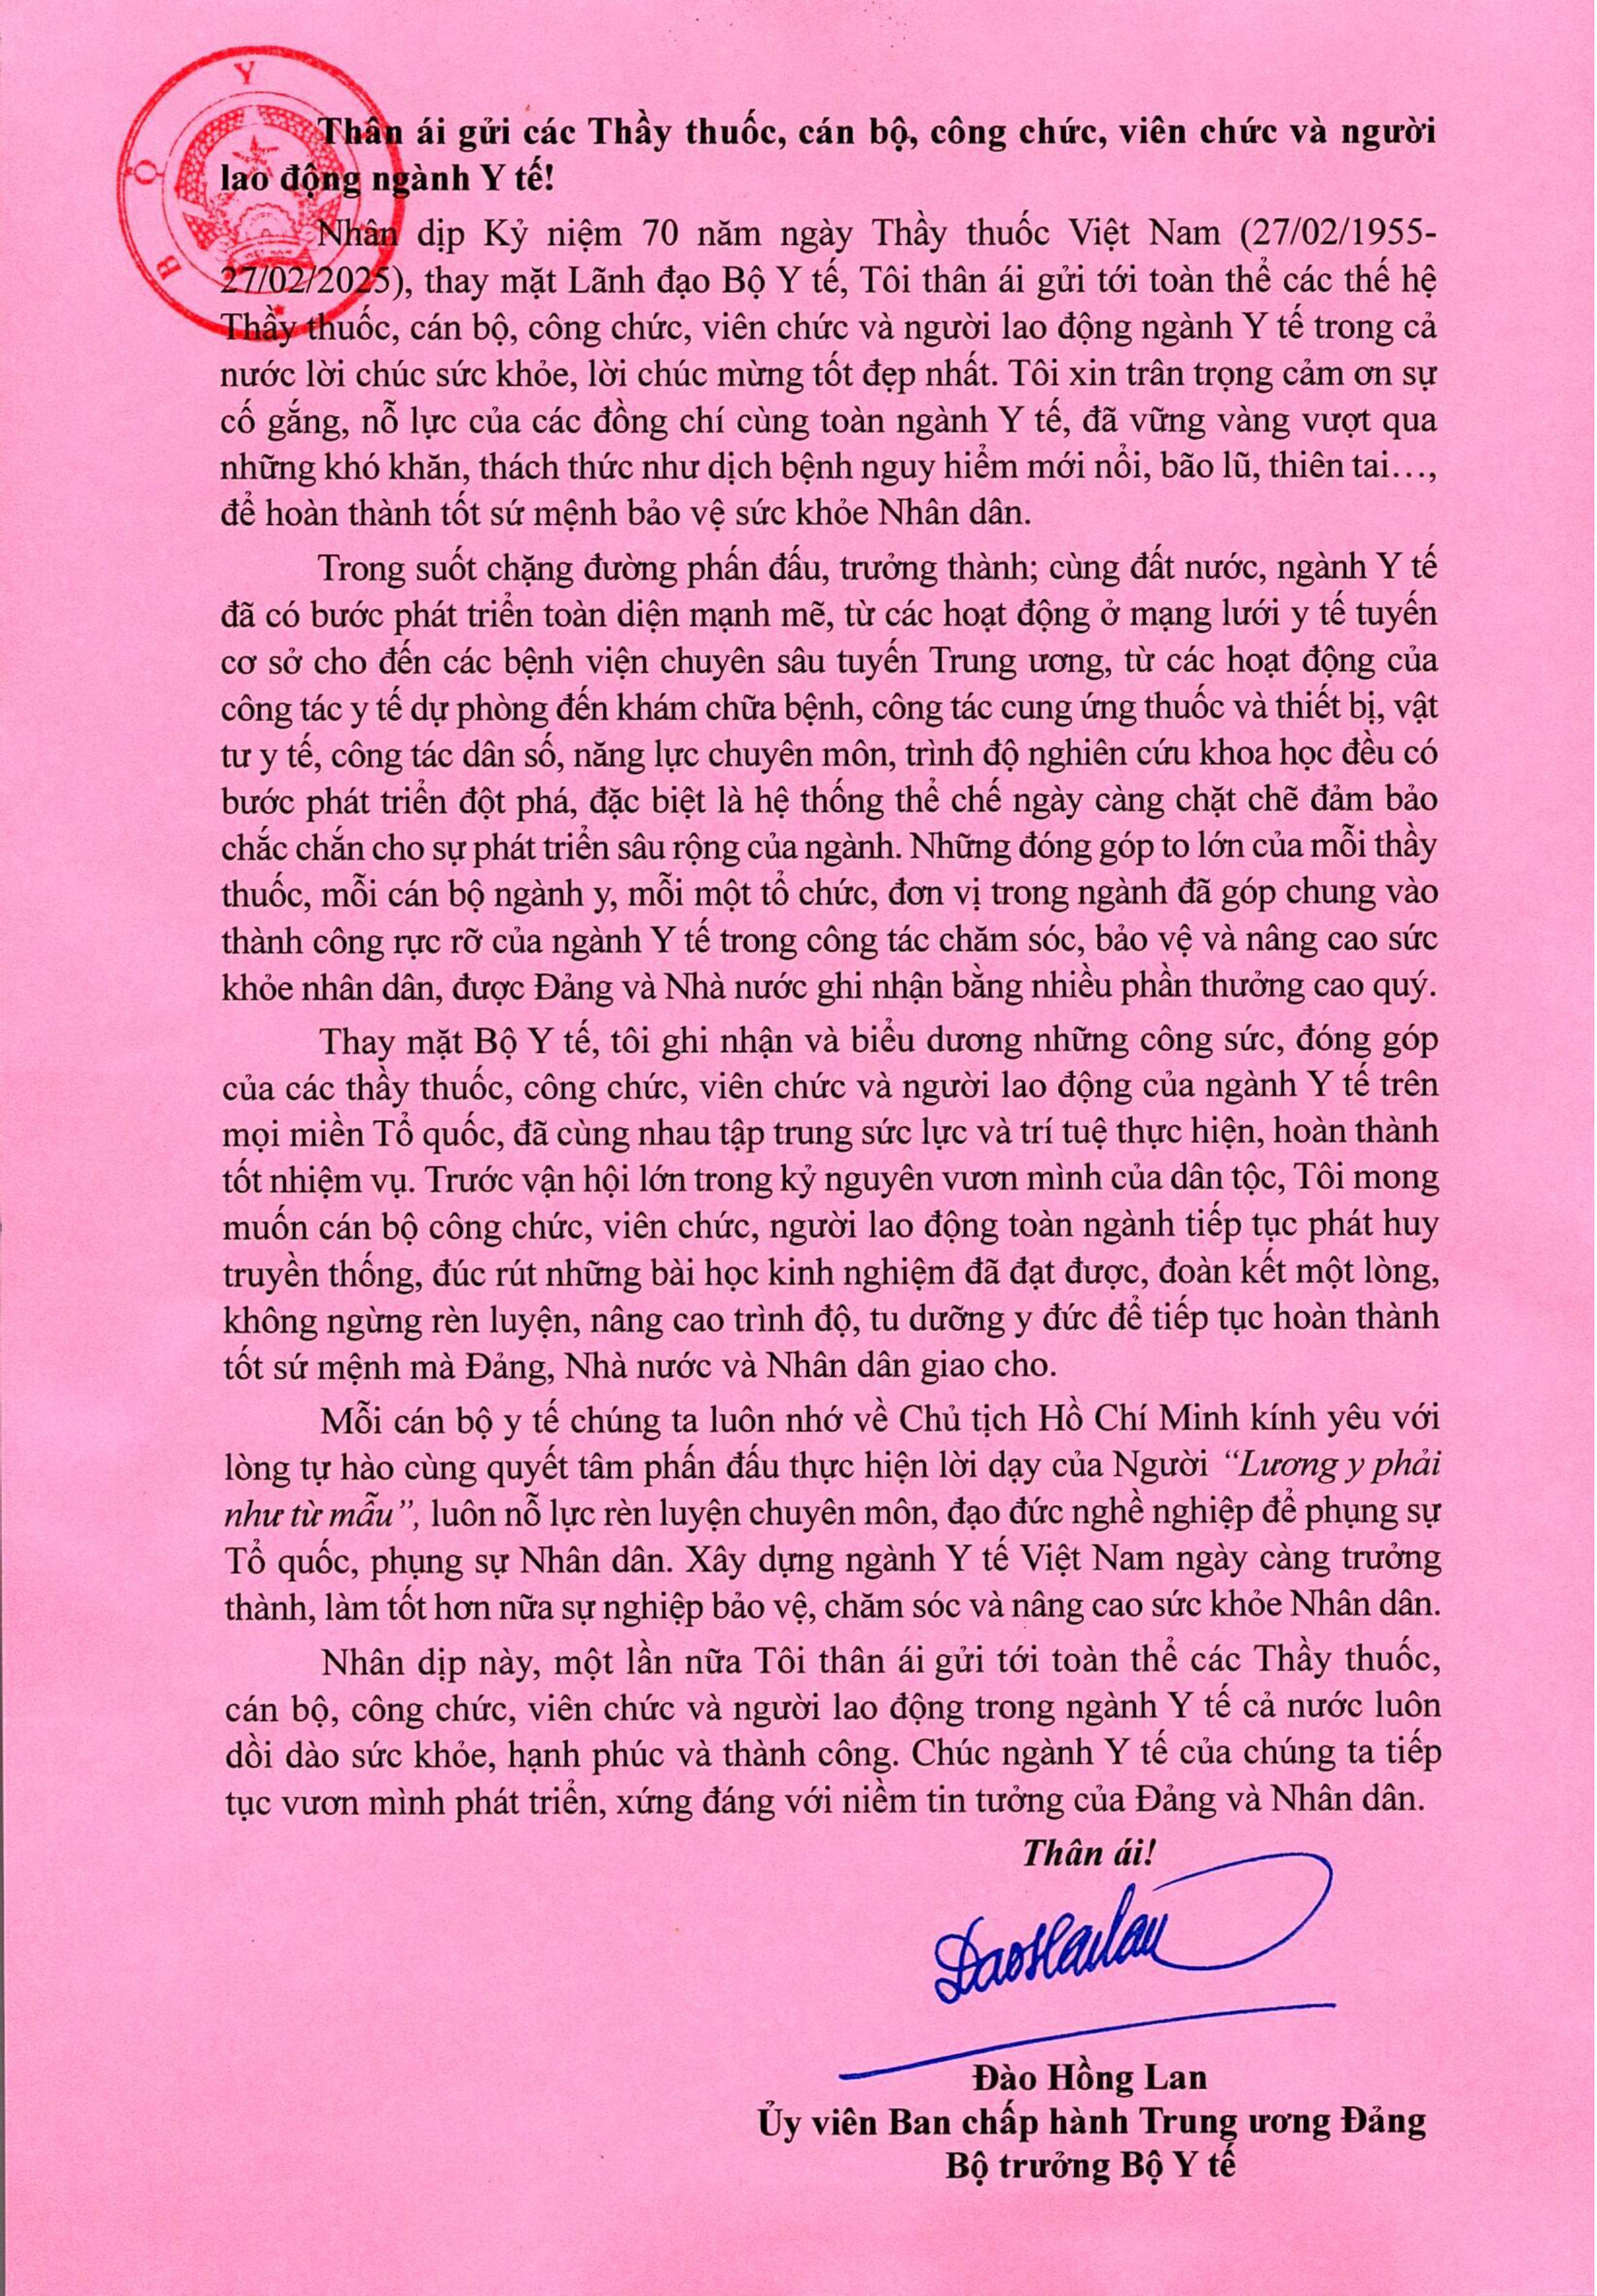 BỘ Y
Thân ái gửi các Thầy thuốc, cán bộ, công chức, viên chức và người
lao động ngành Y tế!
Nhân dịp Kỷ niệm 70 năm ngày Thầy thuốc Việt Nam (27/02/1955-
27/02/2025), thay mặt Lãnh đạo Bộ Y tế, Tôi thân ái gửi tới toàn thể các thế hệ
Thầy thuốc, cán bộ, công chức, viên chức và người lao động ngành Y tế trong cả
nước lời chúc sức khỏe, lời chúc mừng tốt đẹp nhất. Tôi xin trân trọng cảm ơn sự
cố gắng, nỗ lực của các đồng chí cùng toàn ngành Y tế, đã vững vàng vượt qua
những khó khăn, thách thức như dịch bệnh nguy hiểm mới nổi, bão lũ, thiên tai…,
để hoàn thành tốt sứ mệnh bảo vệ sức khỏe Nhân dân.
Trong suốt chặng đường phấn đấu, trưởng thành; cùng đất nước, ngành Y tế
đã có bước phát triển toàn diện mạnh mẽ, từ các hoạt động ở mạng lưới y tế tuyến
cơ sở cho đến các bệnh viện chuyên sâu tuyến Trung ương, từ các hoạt động của
công tác y tế dự phòng đến khám chữa bệnh, công tác cung ứng thuốc và thiết bị, vật
tư y tế, công tác dân số, năng lực chuyên môn, trình độ nghiên cứu khoa học đều có
bước phát triển đột phá, đặc biệt là hệ thống thể chế ngày càng chặt chẽ đảm bảo
chắc chắn cho sự phát triển sâu rộng của ngành. Những đóng góp to lớn của mỗi thầy
thuốc, mỗi cán bộ ngành y, mỗi một tổ chức, đơn vị trong ngành đã góp chung vào
thành công rực rỡ của ngành Y tế trong công tác chăm sóc, bảo vệ và nâng cao sức
khỏe nhân dân, được Đảng và Nhà nước ghi nhận bằng nhiều phần thưởng cao quý.
Thay mặt Bộ Y tế, tôi ghi nhận và biểu dương những công sức, đóng góp
của các thầy thuốc, công chức, viên chức và người lao động của ngành Y tế trên
mọi miền Tổ quốc, đã cùng nhau tập trung sức lực và trí tuệ thực hiện, hoàn thành
tốt nhiệm vụ. Trước vận hội lớn trong kỷ nguyên vươn mình của dân tộc, Tôi mong
muốn cán bộ công chức, viên chức, người lao động toàn ngành tiếp tục phát huy
truyền thống, đúc rút những bài học kinh nghiệm đã đạt được, đoàn kết một lòng,
không ngừng rèn luyện, nâng cao trình độ, tu dưỡng y đức để tiếp tục hoàn thành
tốt sứ mệnh mà Đảng, Nhà nước và Nhân dân giao cho.
Mỗi cán bộ y tế chúng ta luôn nhớ về Chủ tịch Hồ Chí Minh kính yêu với
lòng tự hào cùng quyết tâm phấn đấu thực hiện lời dạy của Người “Lương y phải
như từ mẫu”, luôn nỗ lực rèn luyện chuyên môn, đạo đức nghề nghiệp để phụng sự
Tổ quốc, phụng sự Nhân dân. Xây dựng ngành Y tế Việt Nam ngày càng trưởng
thành, làm tốt hơn nữa sự nghiệp bảo vệ, chăm sóc và nâng cao sức khỏe Nhân dân.
Nhân dịp này, một lần nữa Tôi thân ái gửi tới toàn thể các Thầy thuốc,
cán bộ, công chức, viên chức và người lao động trong ngành Y tế cả nước luôn
dồi dào sức khỏe, hạnh phúc và thành công. Chúc ngành Y tế của chúng ta tiếp
tục vươn mình phát triển, xứng đáng với niềm tin tưởng của Đảng và Nhân dân.
Thân ái!
Đào Hồng Lan
Ủy viên Ban chấp hành Trung ương Đảng
Bộ trưởng Bộ Y tế